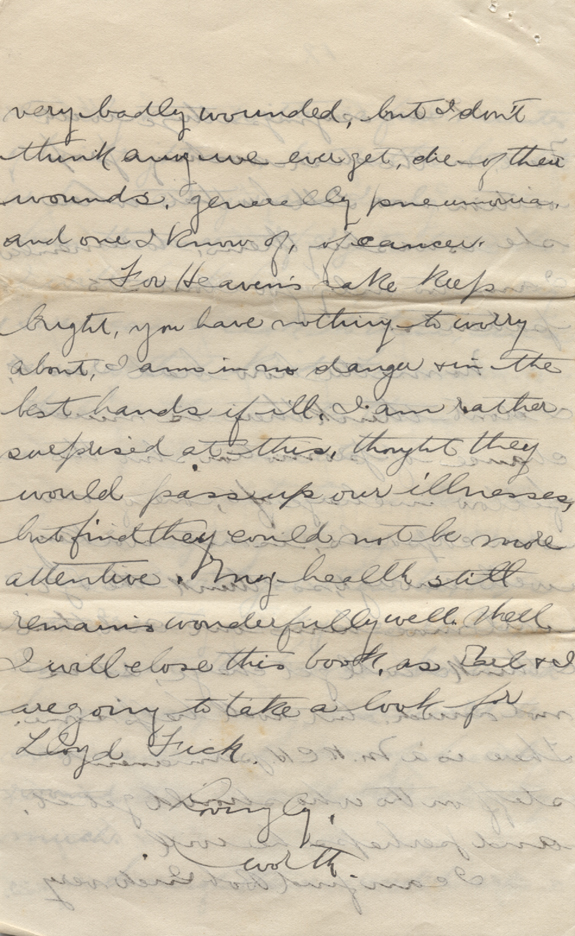 very badly wounded, but I don't
think any we ever get, die of their
wounds, generally pneumonia,
and one I know of, of cancer.
For Heavens sake keep
bright, you have nothing to worry
about, I am in no danger & in the
best hands if ill. I am rather
surprised at this, thought they
would pass up our illnesses,
but find they could not be more
attentive. My health still
remains wonderfully well. Well
I will close this book, as Bel & I
are going to take a look for
Lloyd Fick.
Lovingly,
Worth.